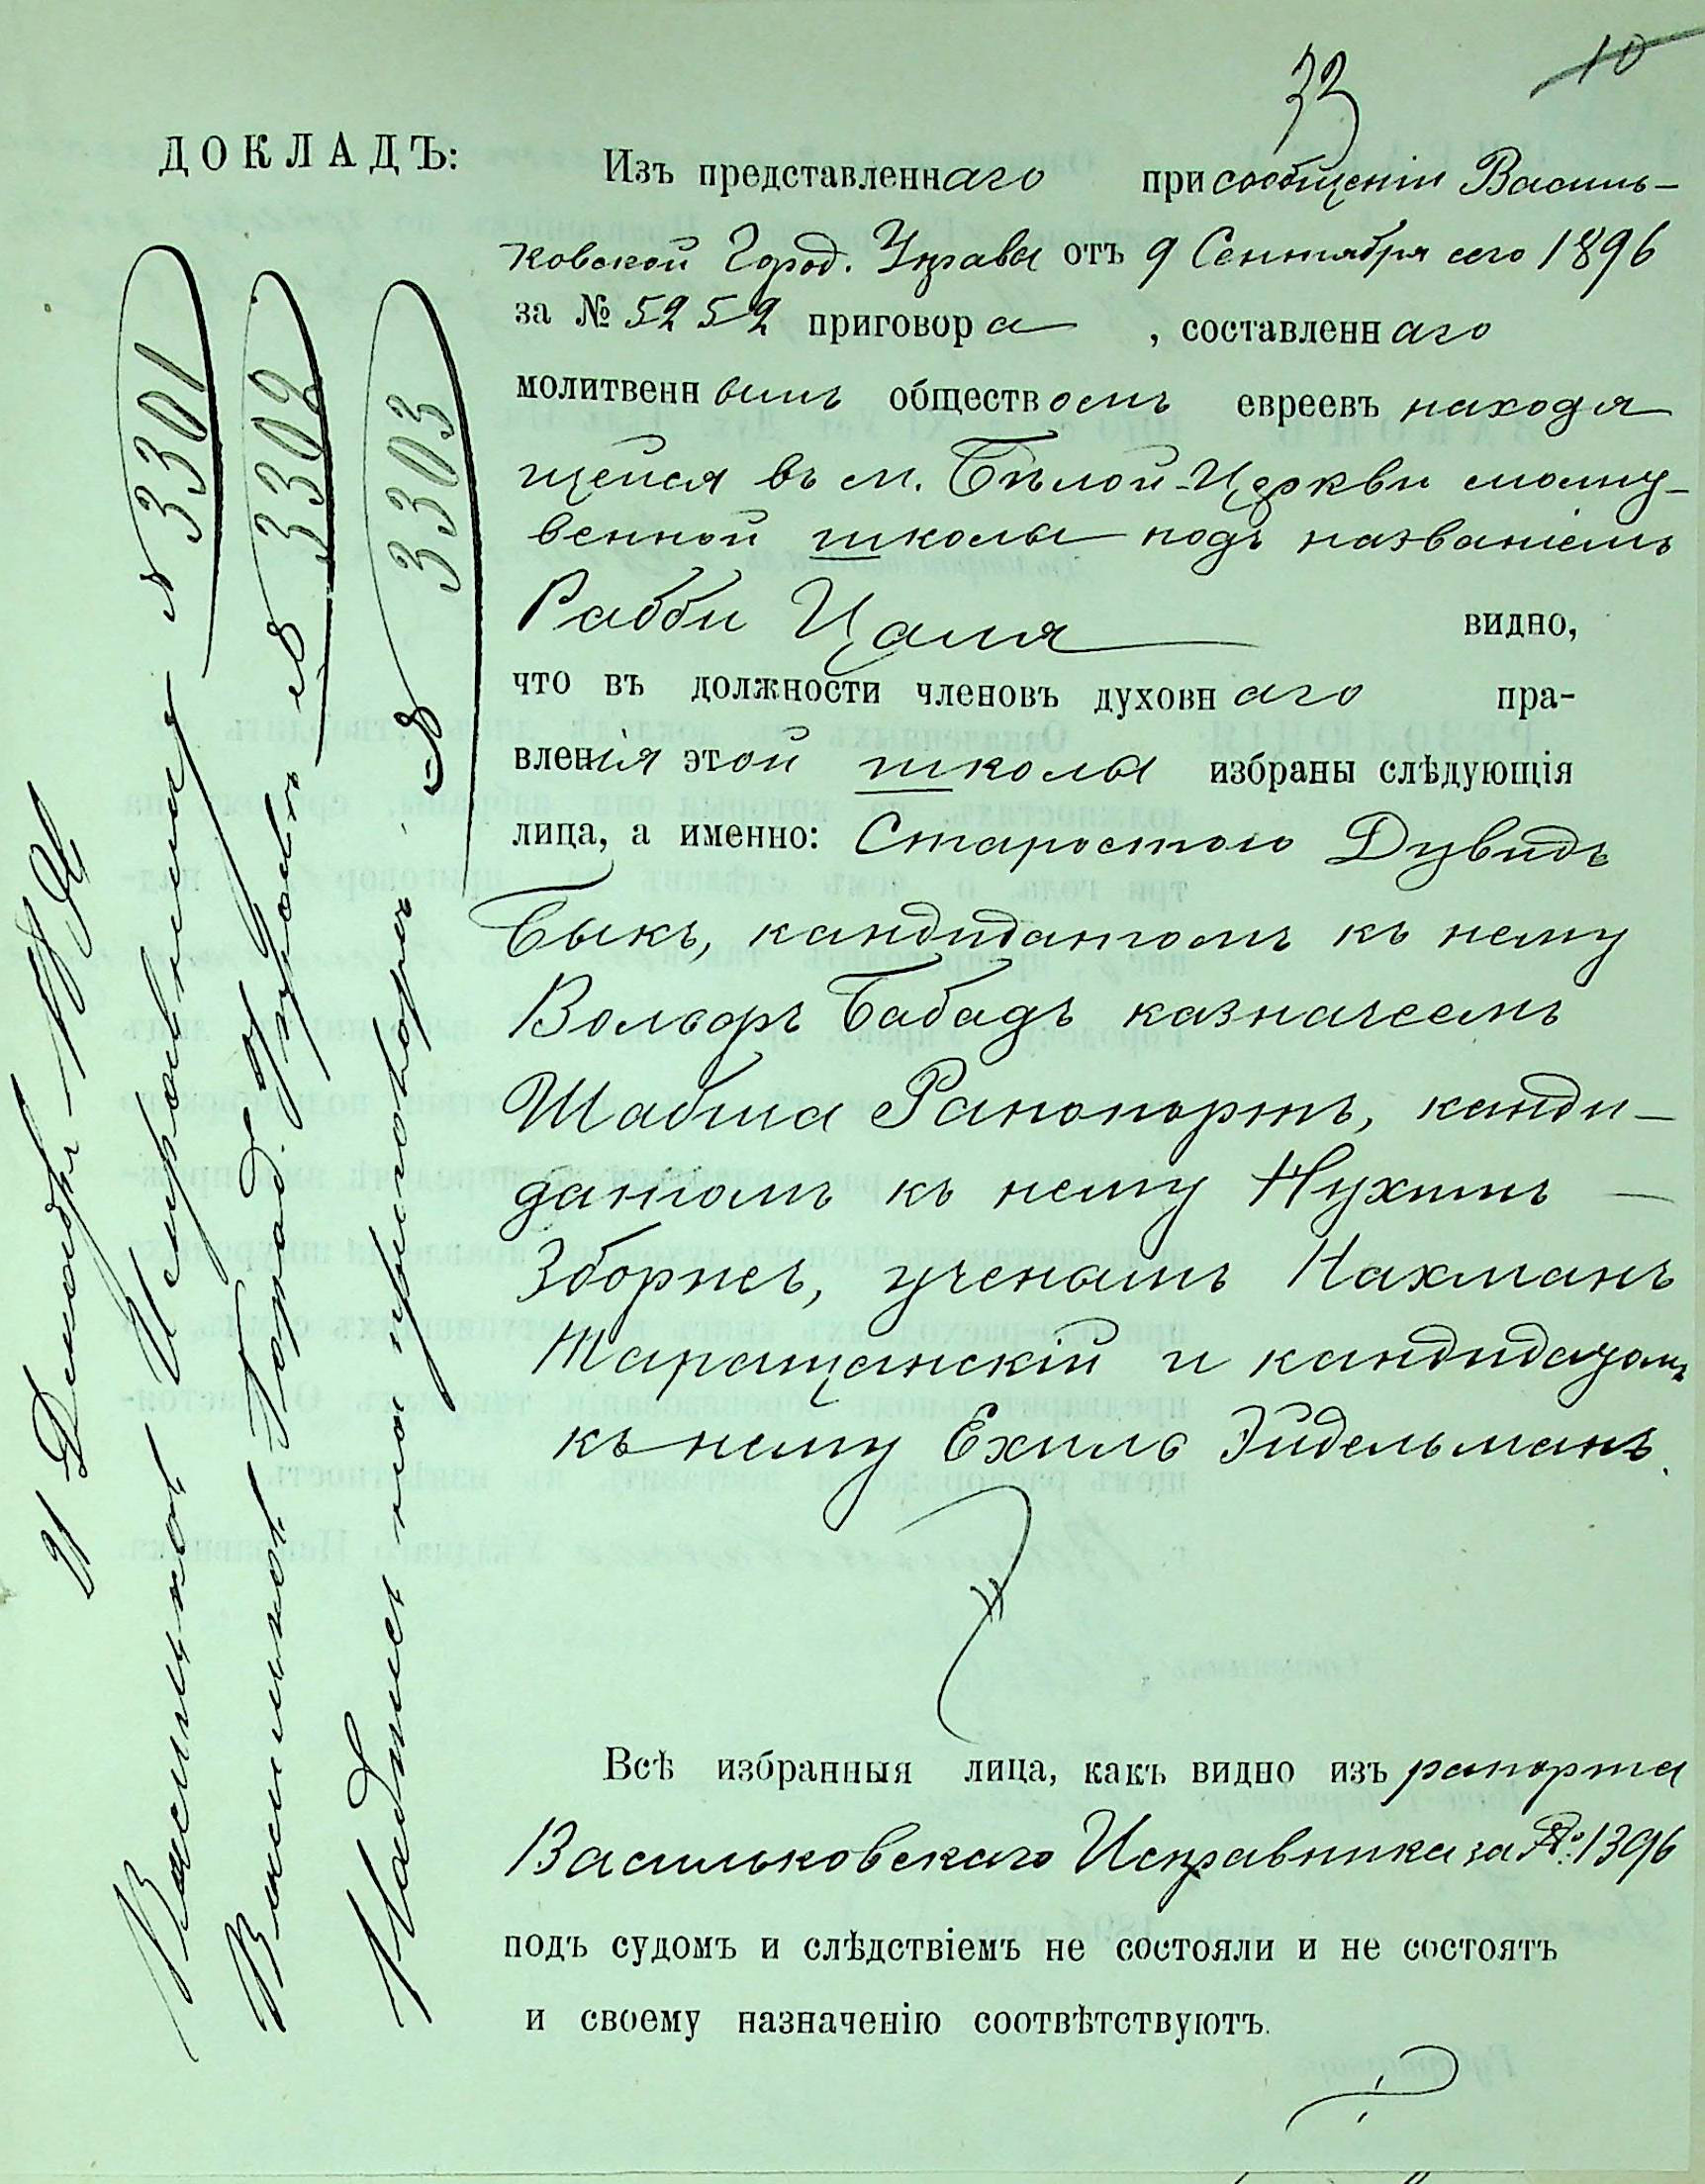 33 10
ДОКЛАДЪ:
Изъ представленнаго при сообщеніи Василь-
ковской Город. Управы отъ 9 Сентября сего 1896
за № 5252 приговора , составленнаго
молитвеннымъ обществомъ евреевъ находя
щейся въ м. Бѣлой-Церкви молит-
венной школы подъ названіемъ
Рабби Цаля видно,
что въ должности членовъ духовнаго пра-
вленія этой школы избраны слѣдующія
лица, а именно: Старостою Дувидъ
Быкъ, кандидатомъ къ нему
Вольфъ Бабадъ казначеемъ
Шабша Рапопортъ, канди-
датомъ къ нему Нухимъ
Зборисъ, ученымъ Нахманъ
Таращанскій и кандидатомъ
къ нему Ехиль Эйдельманъ.
Всѣ избранныя лица, какъ видно изъ рапорта
Васильковскаго Исправника за № 1396
подъ судомъ и слѣдствіемъ не состояли и не состоятъ
и своему назначенію соотвѣтствуютъ.
Декабря
Васильков Исправника № 3301
Васильков Город. Управы № 3302
Надпись на приговоръ № 3303